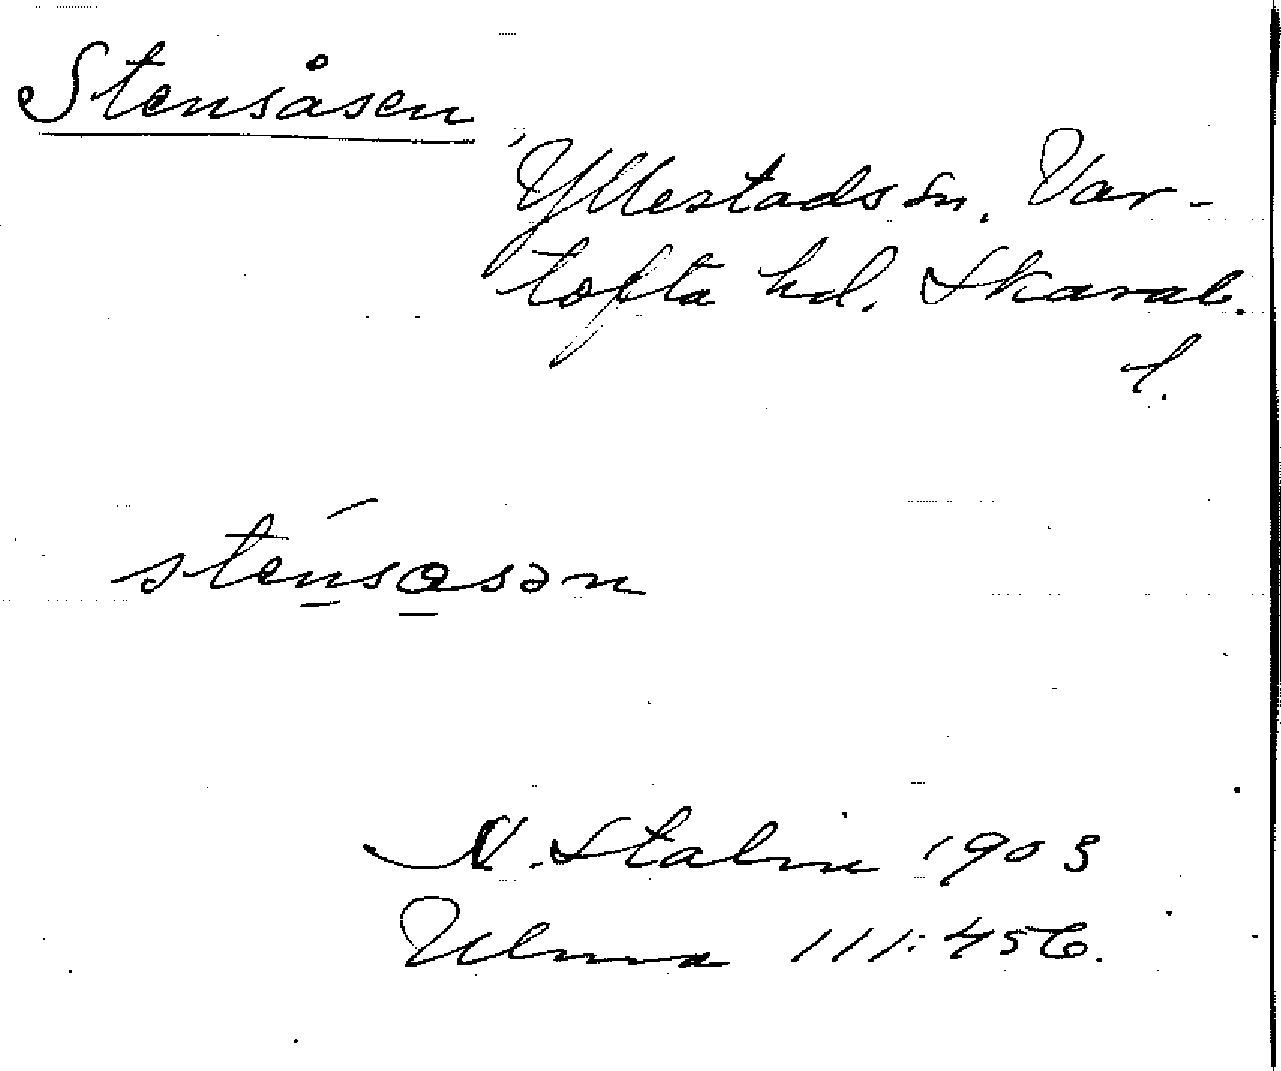 Stensåsen
Yllestads sn. Var-
tofta hd. Skarab.
l.
stensåsən
N. Stalin 1903
Ulma 111:456.